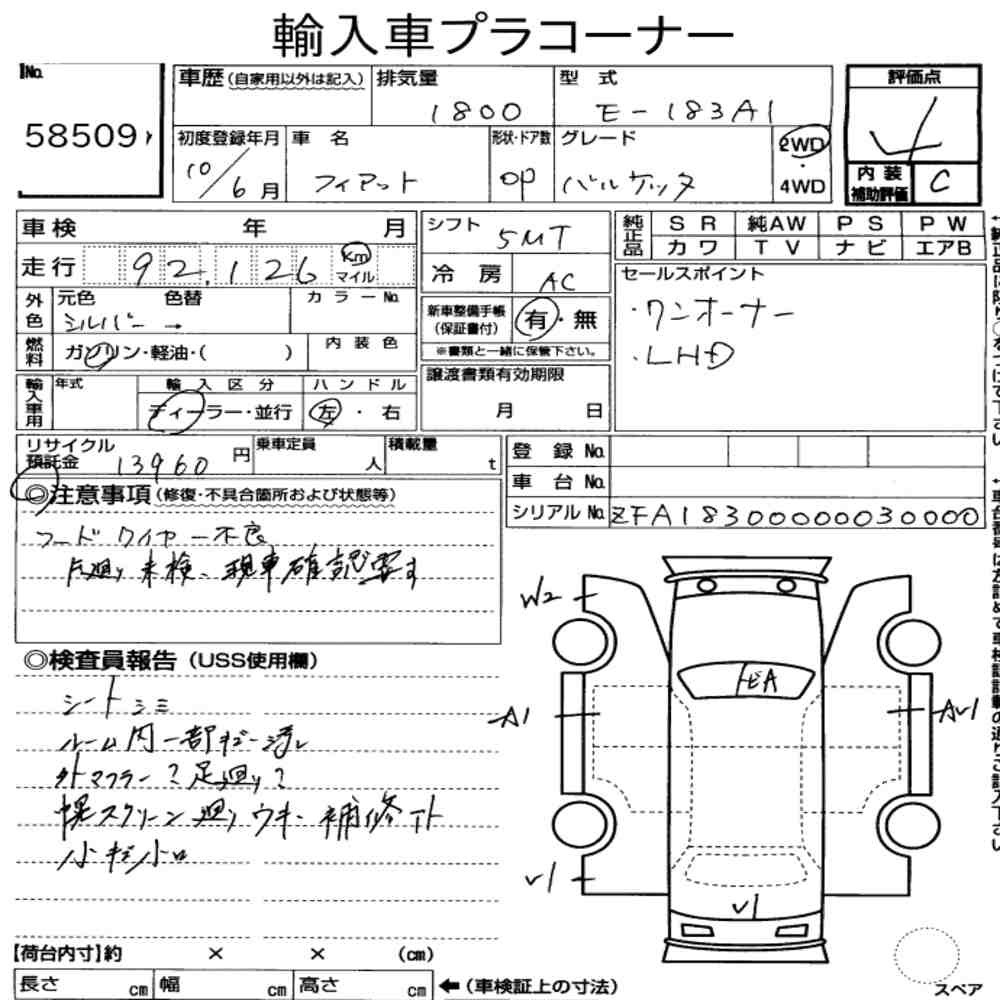 輸入車プラコーナー
No.
58509
車歴(自家用以外は記入)
排気量
1800
型 式
E-183A1
評価点
4
初度登録年月
10/6月
車 名
フィアット
形状・ドア数
OP
グレード
バルケッタ
2WD
・
4WD
内 装
補助評価
C
車検 年 月
走行 92,126 km
マイル
シフト
5MT
冷 房
AC
純正品
SR 純AW PS PW
カワ TV ナビ エアB
外色
元色 色替
シルバー →
カラーNo.
新車整備手帳
(保証書付)
有・無
※書類と一緒に保管下さい。
セールスポイント
・ワンオーナー
・LHD
燃料
ガソリン・軽油・( )
内 装 色
輸入車用
年式
輸 入 区 分
ディーラー・並行
ハ ン ド ル
左 ・ 右
譲渡書類有効期限
月 日
リサイクル
預託金 13960 円
乗車定員
人
積載量
t
登 録 No.
車 台 No.
シリアル No. ZFA18300000030000
◎注意事項(修復・不具合箇所および状態等)
フードワイヤー不良
足廻り未検、現車確認要す
◎検査員報告(USS使用欄)
シートシミ
外マフラー?足廻り?
幌スクリーン廻りウキ・補修下ト
W2
A1
V1
V1
【荷台内寸】約 × × (cm)
長さ cm 幅 cm 高さ cm
←(車検証上の寸法)
スペア